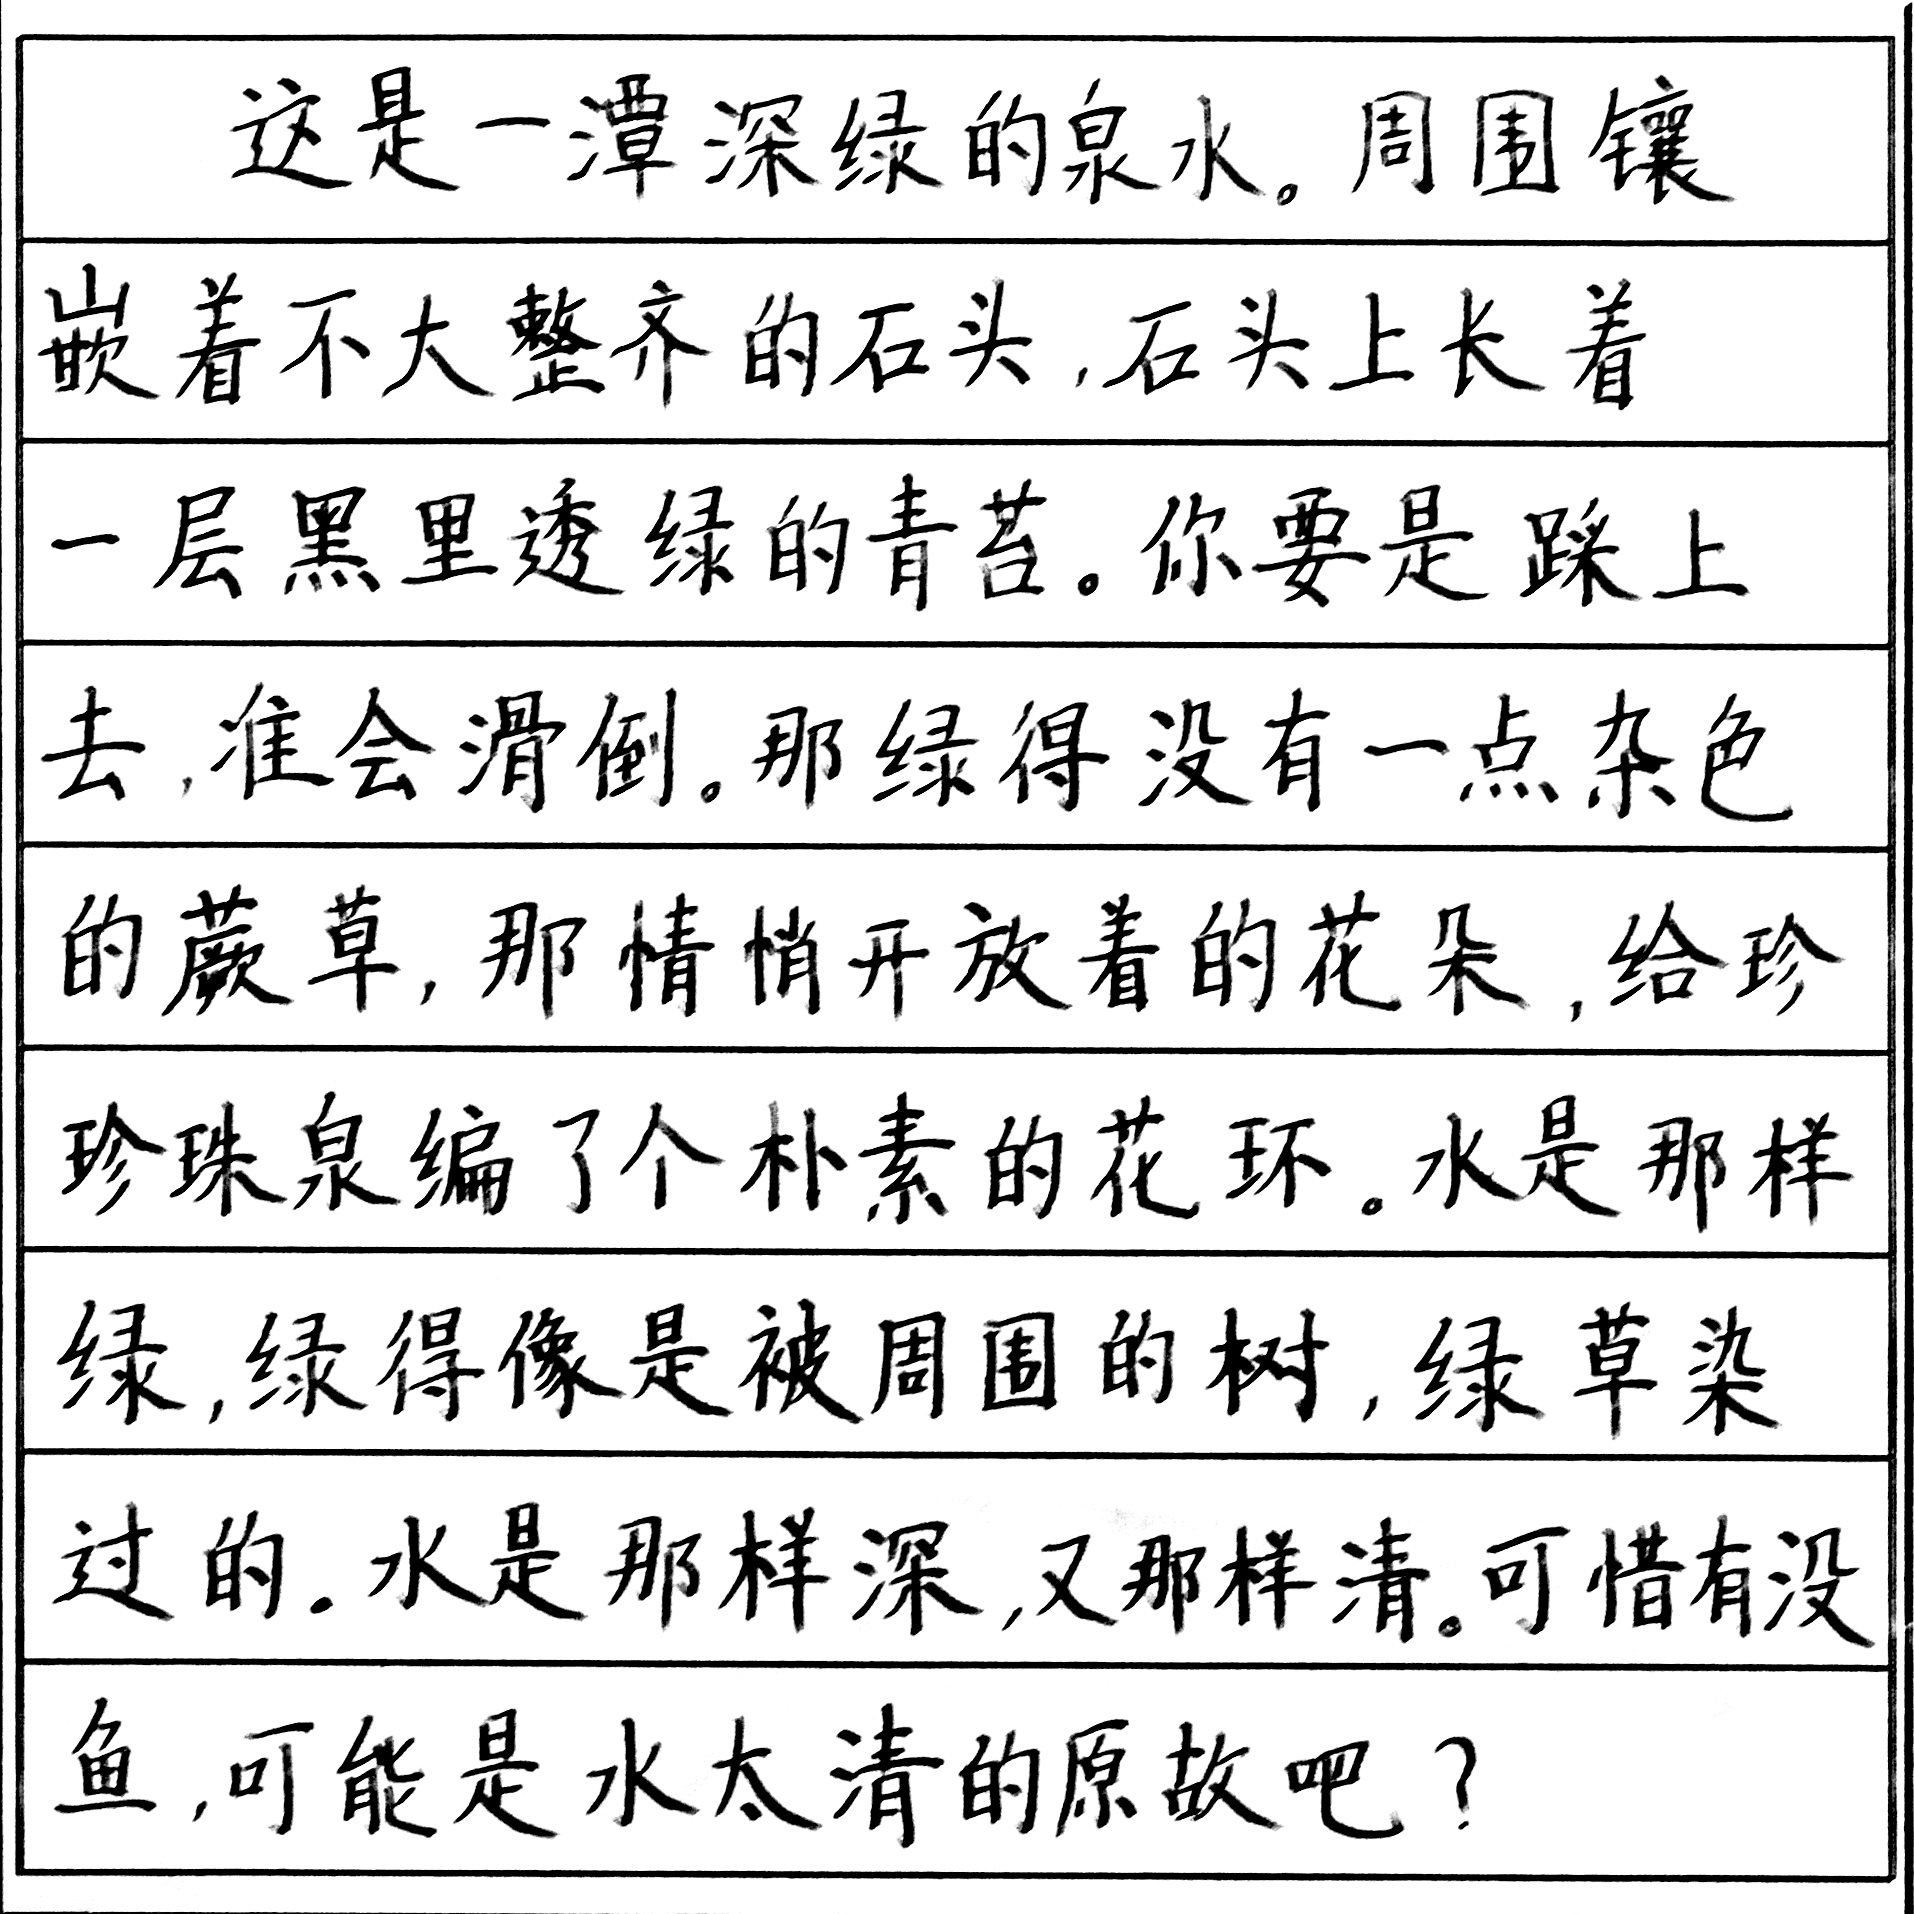 这是一潭深绿的泉水。周围镶
嵌着不大整齐的石头,石头上长着
一层黑里透绿的青苔。你要是踩上
去,准会滑倒。那绿得没有一点杂色
的蕨草,那情悄开放着的花朵,给珍
珍珠泉编了个朴素的花环。水是那样
绿,绿得像是被周围的树,绿草染
过的.水是那样深,又那样清。可惜有没
鱼,可能是水太清的原故吧?